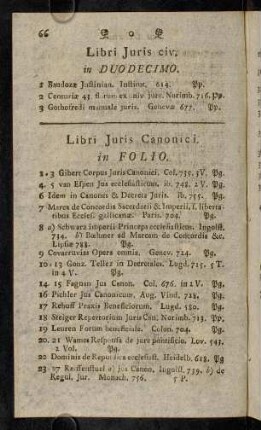 66
Libri Juris civ.
in DUODECIMO.
2 Baudoza Justinian. Institut. 614. Pp.
2 Centuriæ 43 Jurium ex civ. jure. Norimb. 716. Pp.
3 Gothofredi manuale juris. Genevæ 677. Pp.
Libri Juris Canonici.
in FOLIO.
1-3 Gibert Corpus Juris Canonici. Col. 735. 3V. Pg.
4. 5 van Espen Jus ecclesiasticum. ib. 748. 2 V. Pg.
6 Idem in Canones & Decreta Juris. ib. 755. Pg.
7 Marca de Concordia Sacerdotii & Imperii, f. liberta-
tibus Eccles. gallicanæ. Paris. 704. Pg.
8 a) Schwarz Imperii Princeps ecclesiasticus. Ingolst.
734. b) Bœhmer ad Marcam de Concordia &c.
Lipsiæ 788. Pg.
9 Covarruvias Opera omnia. Genev. 724. Pg.
10-13 Gonz. Tellez in Decretales. Lugd. 715. 5 T.
in 4 V. Pg.
14. 15 Fagnan Jus Canon. Col. 676. in 2 V. Pg.
16 Pichler Jus Canonicum, Aug. Vind. 728. Pg.
17 Rebuff Praxis Beneficiorum, Lugd. 580. Pg.
18 Steiger Repertorium Juris Can. Norimb. 713. Pp.
19 Leuren Forum beneficiale. Colon. 704. Pg.
20. 21 Wames Responsa de jure pontificio. Lov.
2 Vol. Pg.
22 Dominis de Republica ecclesiast. Heidelb. 618. Pg
23 a) Jus Canon. Ingolst. 739. b) de
Regul. jur. Monach. 756. 5 P.